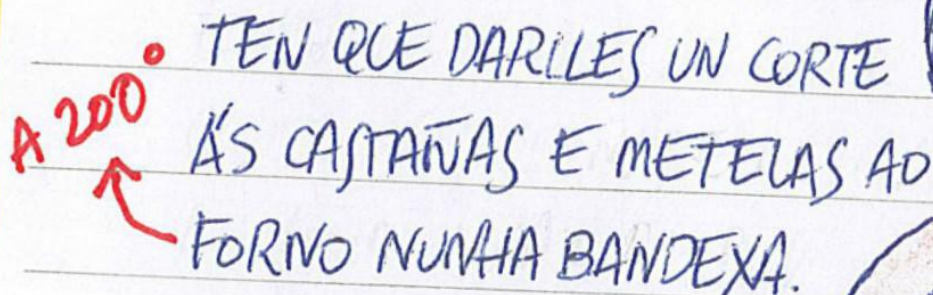 TEN QUE DARLLES UN CORTE
A 200°
ÁS CASTAÑAS E METELAS AO
FORNO NUNHA BANDEXA.